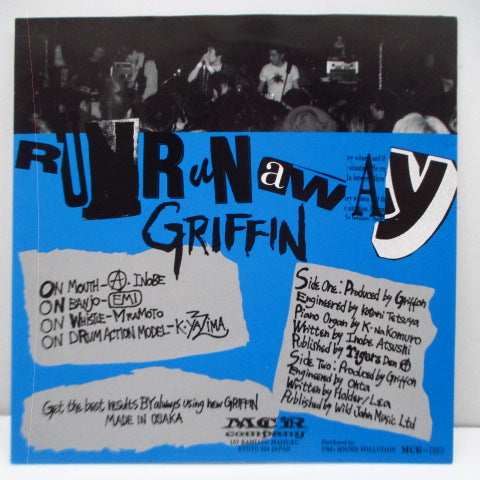 RUN RuN awAy
GRIFFIN
ON MOUTH—Ⓐ. INOBE
ON BANJO—EMI
ON WHISTLE—MIYAMOTO
ON DRUM ACTION MODEL—K. YAZIMA
Get the best results BY always using new GRIFFIN
MADE IN OSAKA
Side One: Produced by Griffin
Engineered by Kotani Tetsuya
Piano Organ by K. Nakamuro
Written by Inobe Atsushi
Published by Tigers Den Ⓐ
Side Two: Produced by Griffin
Engineered by Ohta
Written by Holder/Lea
Published by Wild John Music Ltd
MCR
company
157 KAMIAGU MAIZURU
KYOTO 624 JAPAN
Distributed by:
USA: SOUND POLLUTION
MCR-083